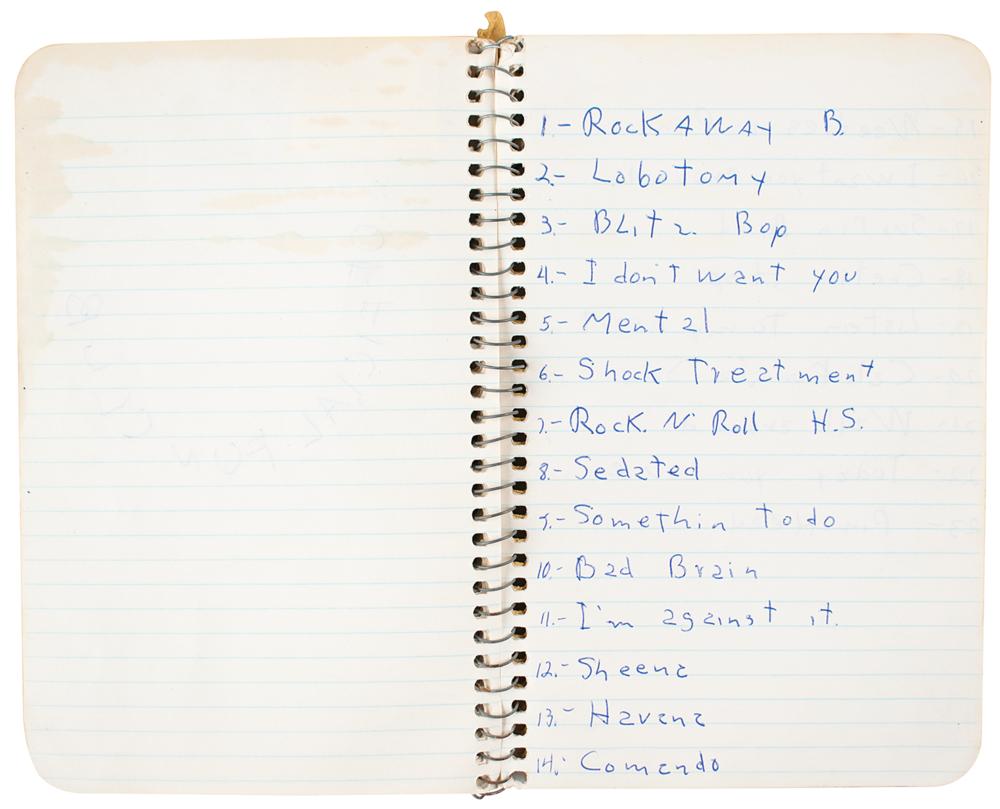 1.- Rockaway B.
2.- Lobotomy
3.- Blitz. Bop
4.- I don't want you
5.- Mental
6.- Shock Treatment
7.- Rock. N' Roll H.S.
8.- Sedated
9.- Somethin to do
10.- Bad Brain
11.- I'm against it.
12.- Sheena
13.- Havana
14.- Comando